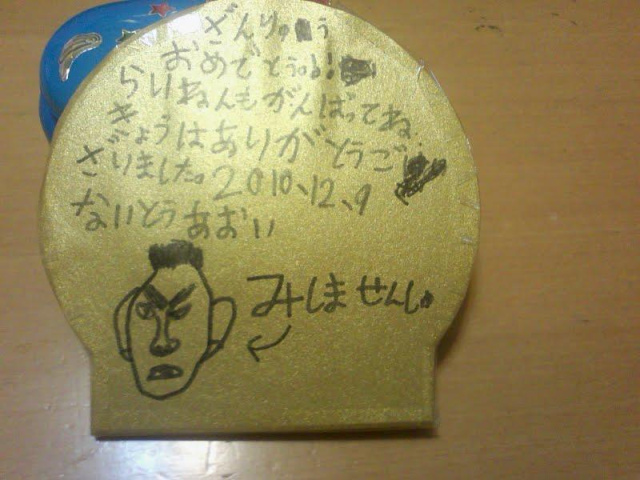 ざんりゅう
おめでとう。!!
らいねんもがんばってね。
きょうはありがとうご
ざりました。2010、12、9
ないとうあおい
みしませんしゅ